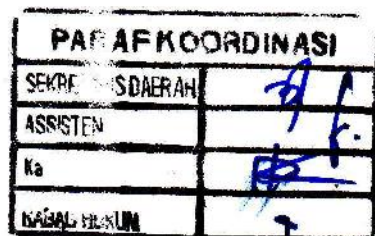 PARAF KOORDINASI
SEKRE IS DAERAH
ASSISTEN
Ka
KABAG HUKUM